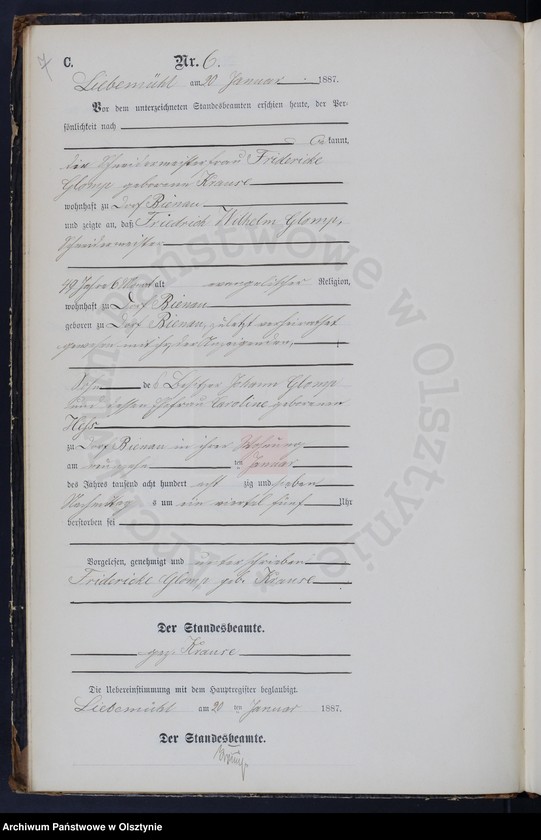 C. Nr. 6.
Liebemühl am 20. Januar 1887.
Vor dem unterzeichneten Standesbeamten erschien heute, der Per-
sönlichkeit nach
kannt,
die Schneidermeisterfrau Fridericke
Glomp geborene Krause
wohnhaft zu Dorf Bienau
und zeigte an, daß Friedrich Wilhelm Glomp,
Schneidermeister
49 Jahre 6 Monat alt evangelischer Religion,
wohnhaft zu Dorf Bienau
geboren zu Dorf Bienau, zuletzt verheirathet
gewesen mit ihr, der Anzeigenden,
Sohn des Besitzer Johann Glomp
und dessen Ehefrau Caroline geborenen
Hess
zu Dorf Bienau in ihrer Wohnung
am neunzehn ten Januar
des Jahres tausend acht hundert acht zig und sieben
Nachmittag s um ein viertel fünf Uhr
verstorben sei
Vorgelesen, genehmigt und unterschrieben
Fridericke Glomp geb. Krause
Der Standesbeamte.
gez. Krause
Die Uebereinstimmung mit dem Hauptregister beglaubigt.
Liebemühl am 20 ten Januar 1887.
Der Standesbeamte.
Krause
Archiwum Państwowe w Olsztynie
Archiwum Państwowe w Olsztynie